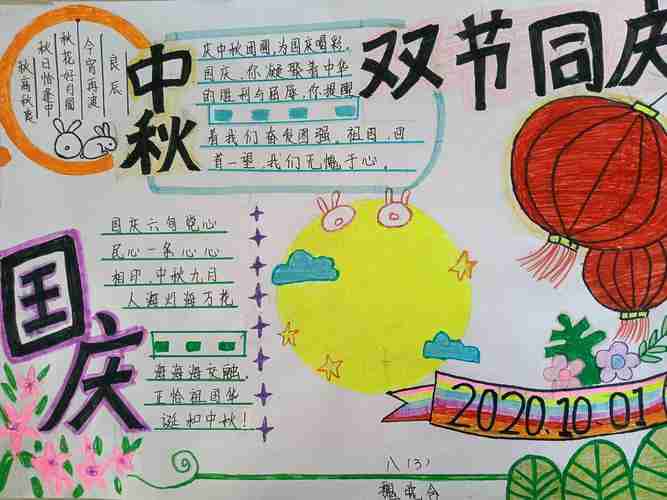 双节同庆
中秋
良辰
今宵再
秋花好月圆
秋日恰逢中
庆中秋团圆,为国庆喝彩。
国庆,你凝聚着中华
的胜利与屈辱,你提醒
着我们奋发图强。祖国,回
首一望,我们无愧于心。
国庆
国庆六旬党心
民心一条心心
相印,中秋九月
人海灯海万花
海海海交融,
正恰祖国华
诞和中秋!
2020.10.01
八(3)
魏